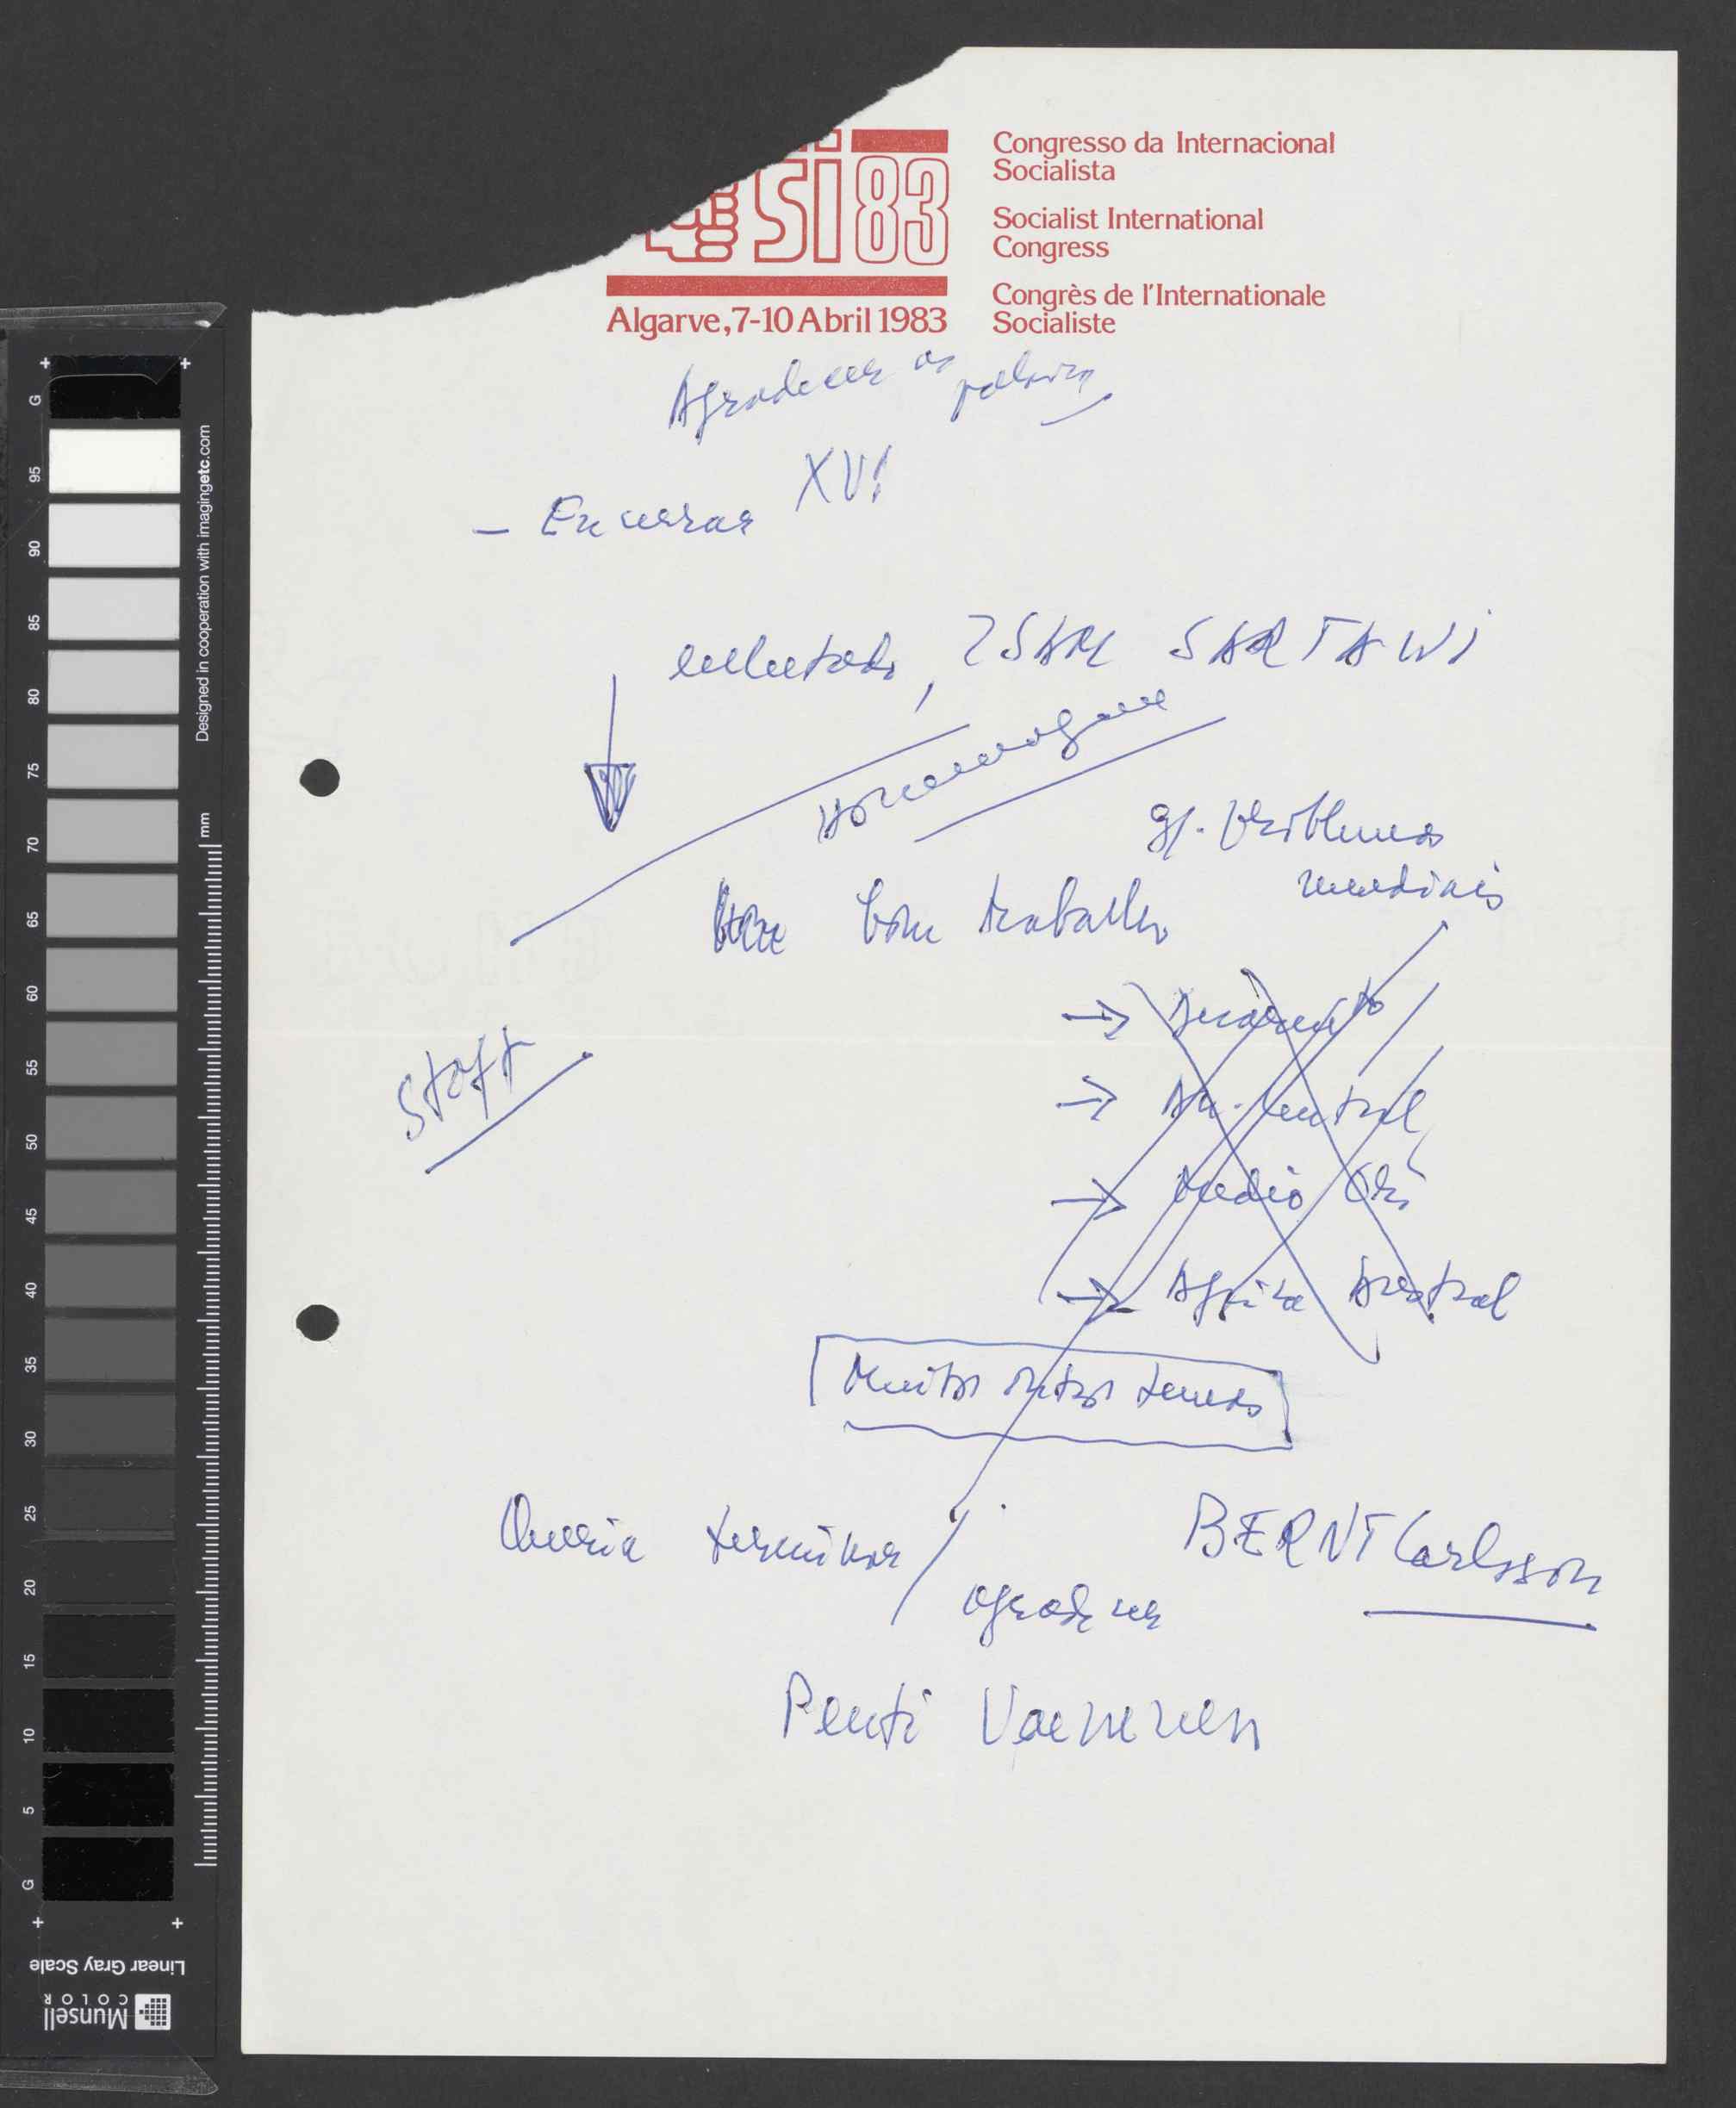 SI 83
Algarve, 7-10 Abril 1983
Congresso da Internacional
Socialista
Socialist International
Congress
Congrès de l'Internationale
Socialiste
Agradecer as palavras
– Encerrar XVI
enlutado, ISAM SARTAWI
Homenagem
gr. problemas
mundiais
bom trabalho
Staff
→ Desarmamento
→ Am. Central
→ Médio Ori
→ Africa Austral
Muitos outros temas
Queria terminar /
agradecer
BERNT Carlsson
Penti Vaennen
G
95
90
85
80
75
70
65
60
55
50
45
40
35
30
25
20
15
10
5
G
Designed in cooperation with imagingetc.com
mm
Linear Gray Scale
Munsell
COLOR